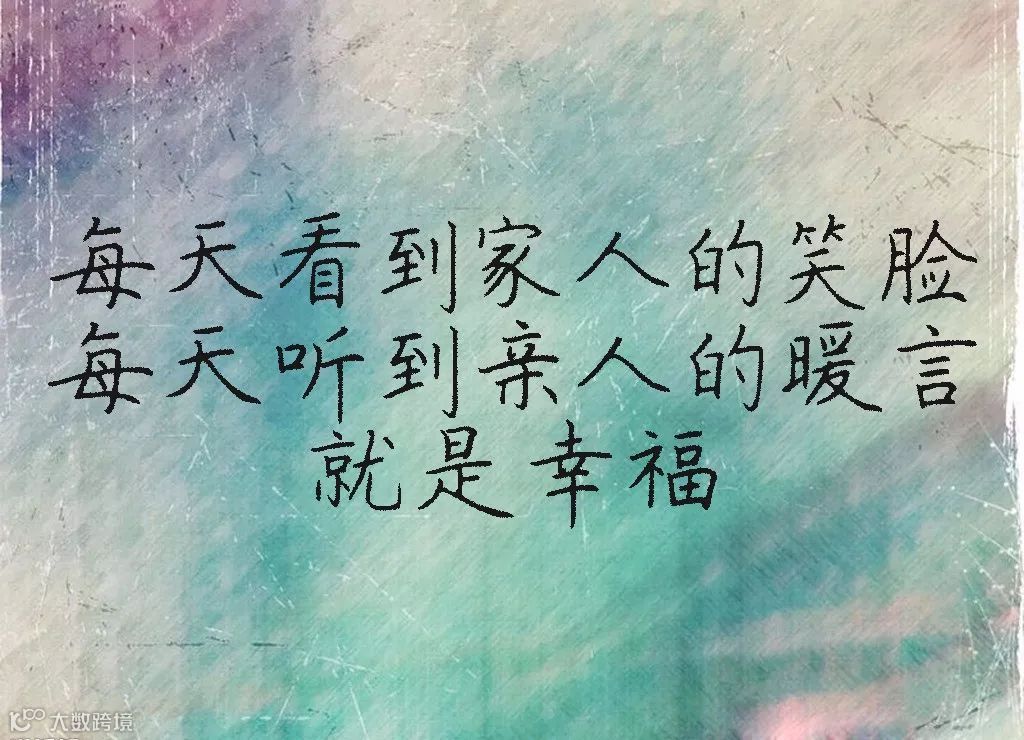 每天看到家人的笑脸
每天听到亲人的暖言
就是幸福
大数跨境